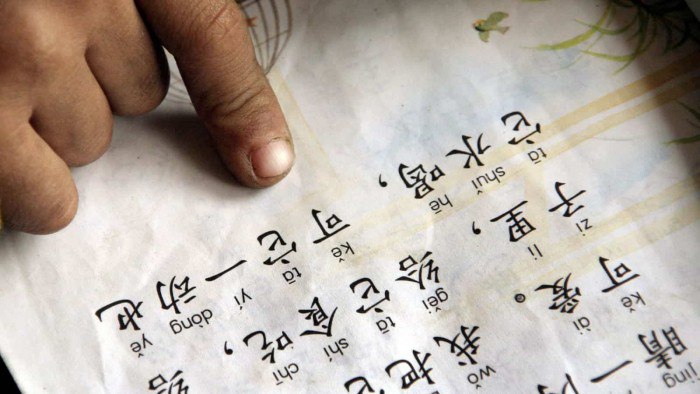 jīng
睛一
kě ài wǒ
可爱。我把它
zi lǐ gěi tā shí chī
子里，给它食吃，给
tā shuǐ hē kě tā yí dòng yě
它水喝，可它一动也